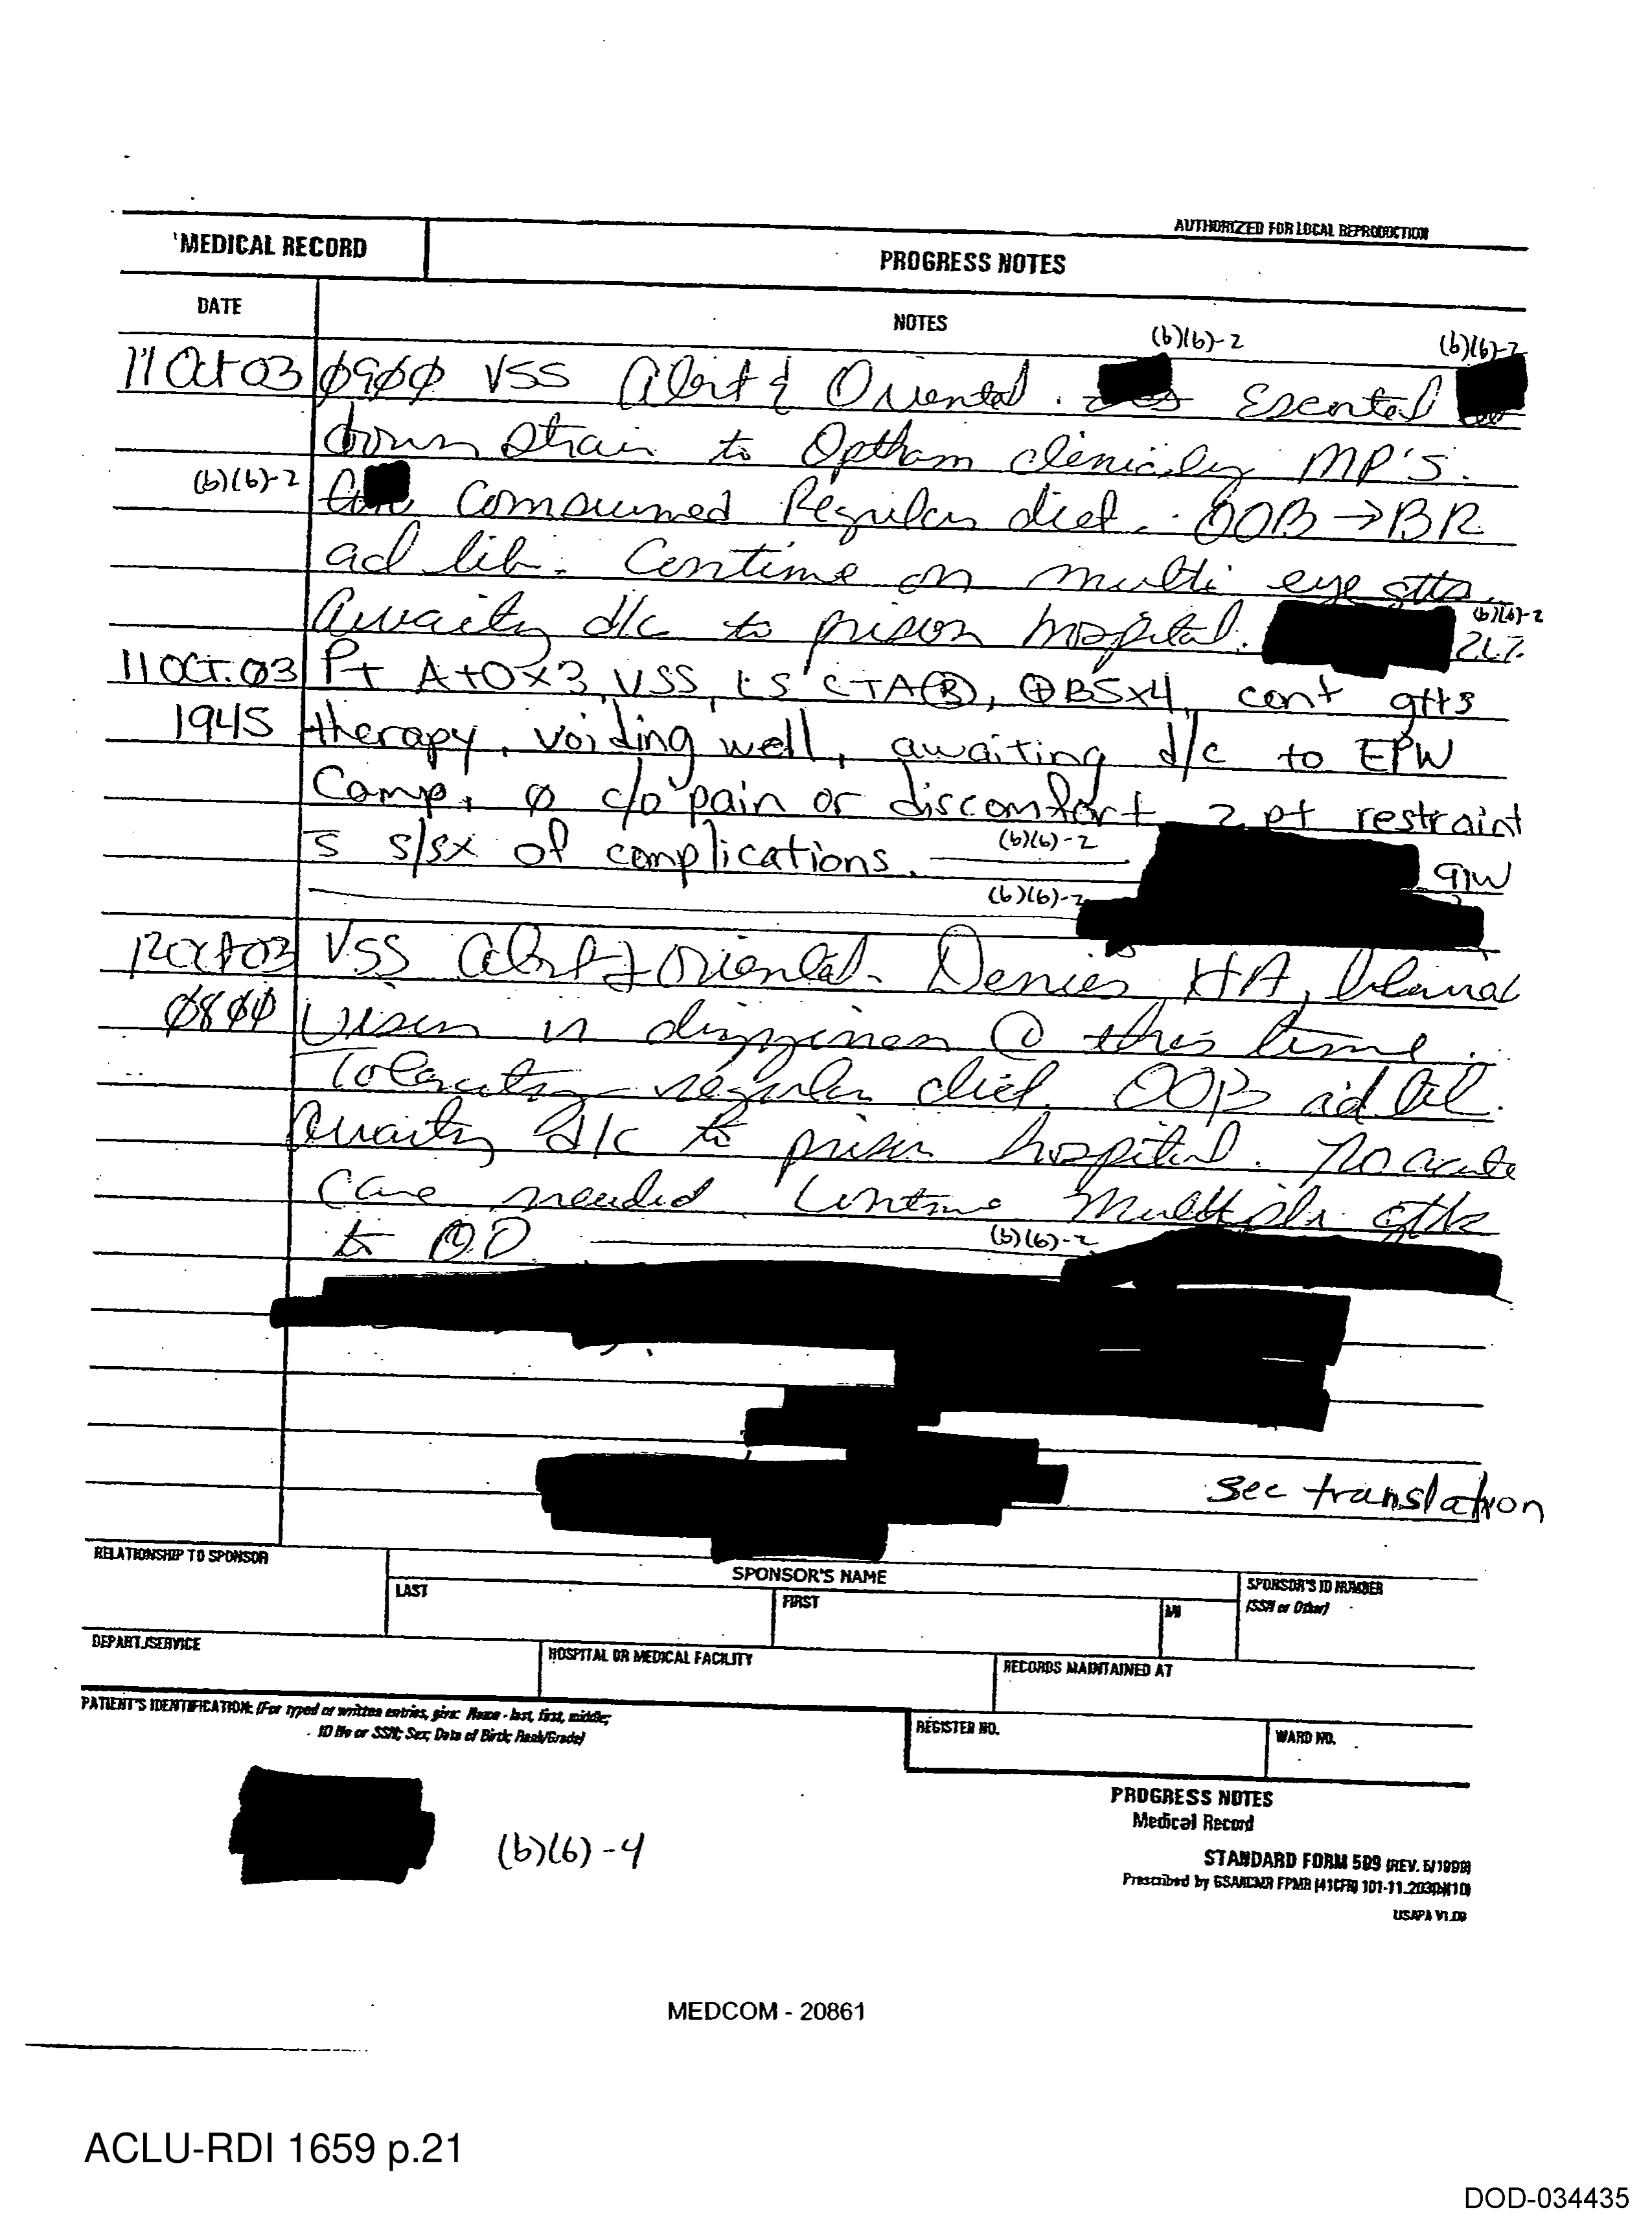 AUTHORIZED FOR LOCAL REPRODUCTION
MEDICAL RECORD
PROGRESS NOTES
DATE
NOTES
(b)(6)-2
(b)(6)-2
11 Oct 03 0900 VSS Alert & Oriental. Escorted
down strain to Optham clinic by MP'S.
(b)(6)-2
Consumed Regular diet. OOB → BR
ad lib. Continue on multi eye gtts.
Awaity d/c to prison hospital.
(b)(6)-2
11 OCT. 03 Pt A+O×3, VSS, LS CTA(B), ⊕BS×4, cont gtts
1945 therapy, voiding well, awaiting d/c to EPW
Camp, ø c/o pain or discomfort 2 pt restraint
s̄ s/sx of complications.
(b)(6)-2
91W
(b)(6)-2
12 Oct 03 VSS Alert & Oriental. Denies HA, blurred
0800 Vision or dizziness @ this time.
Tolerating regular diet. OOB ad lib.
Awaity d/c to prison hospital. No acute
Care needed Continue Multiple gtts
to OD
(b)(6)-2
see translation
RELATIONSHIP TO SPONSOR
SPONSOR'S NAME
LAST
FIRST
MI
SPONSOR'S ID NUMBER
(SSN or Other)
DEPART./SERVICE
HOSPITAL OR MEDICAL FACILITY
RECORDS MAINTAINED AT
PATIENT'S IDENTIFICATION: (For typed or written entries, give: Name - last, first, middle;
ID No or SSN; Sex; Date of Birth; Rank/Grade)
REGISTER NO.
WARD NO.
(b)(6)-4
PROGRESS NOTES
Medical Record
STANDARD FORM 509 (REV. 5/1999)
Prescribed by GSA/ICMR FPMR (41CFR) 101-11.203(b)(10)
USAPA V1.00
MEDCOM - 20861
ACLU-RDI 1659 p.21
DOD-034435